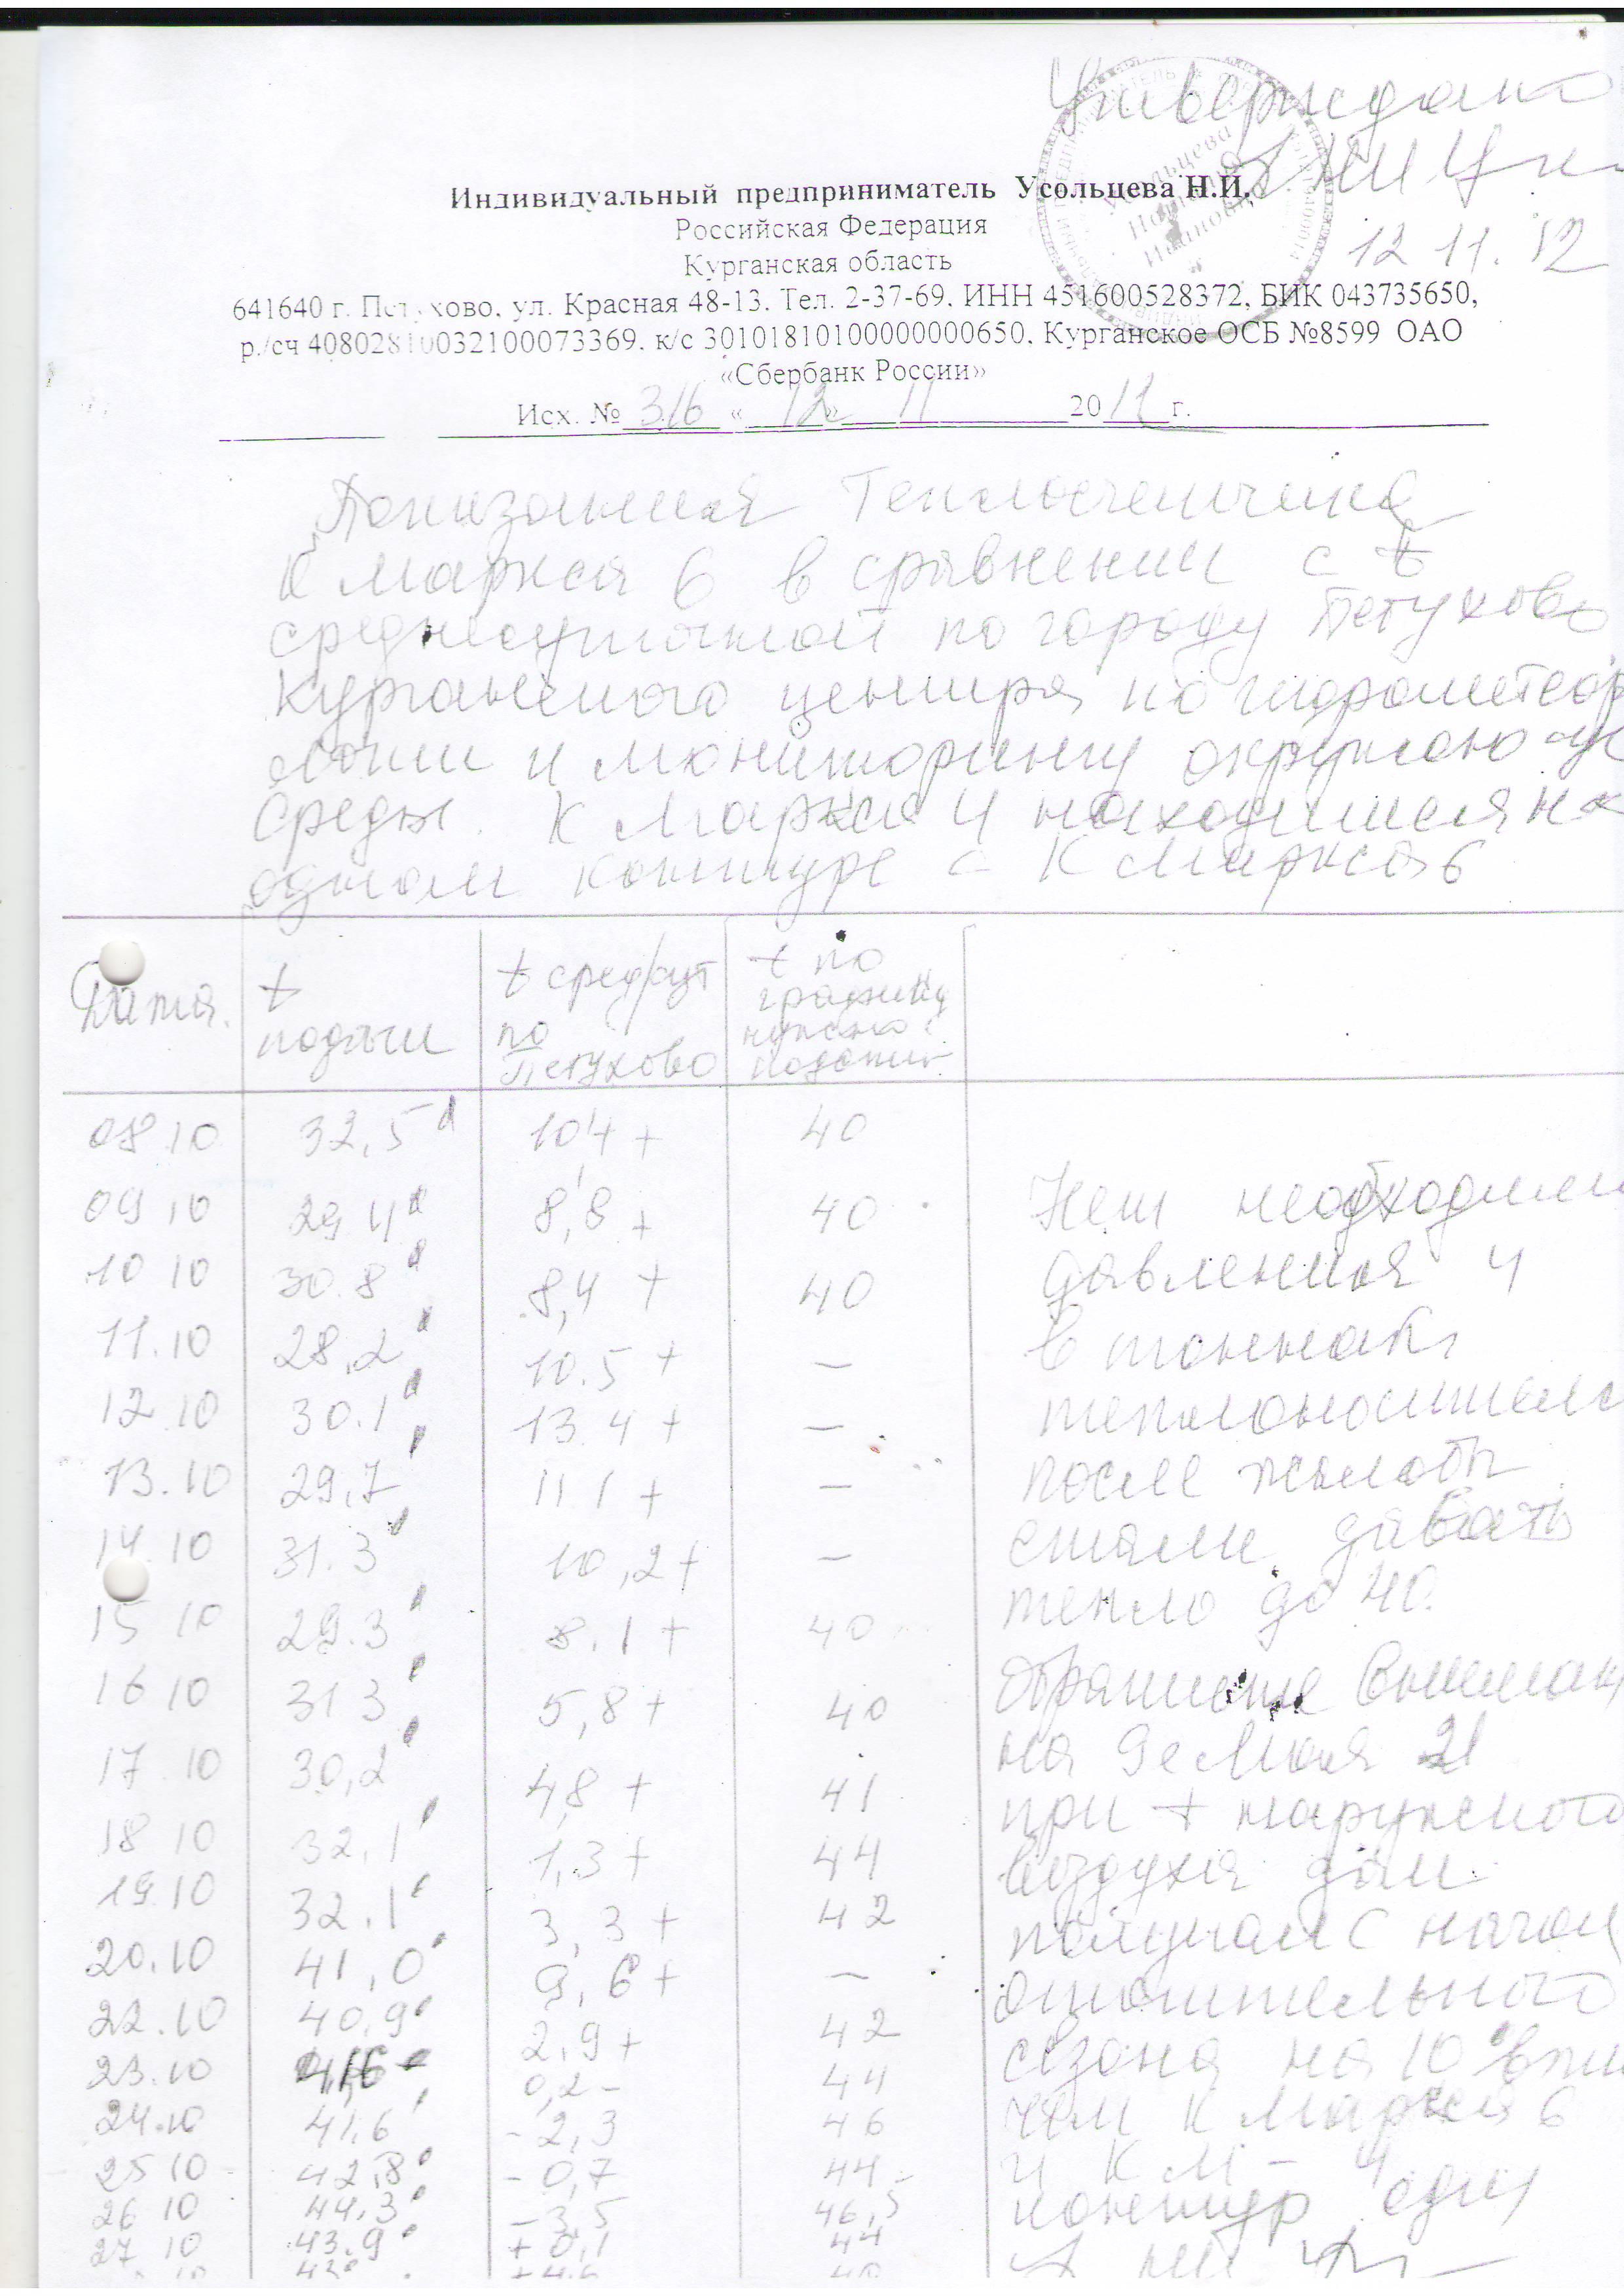 Утверждаю
12 11. 12
Индивидуальный предприниматель Усольцева Н.И.
Российская Федерация
Курганская область
641640 г. Петухово, ул. Красная 48-13. Тел. 2-37-69, ИНН 451600528372, БИК 043735650,
р./сч 40802810032100073369, к/с 30101810100000000650, Курганское ОСБ №8599 ОАО
«Сбербанк России»
Исх. № 316 « 12 » 11 20 12 г.
Показания Теплосчетчика
К Маркса 6 в сравнении с t
среднесуточной по городу Петухово
Курганского центра по гидрометеор
логии и мониторингу окружающ
среды. К Маркса 4 находится на
одном контуре с К Маркса 6
Дата. t подачи t сред/сут по Петухово t по графику нужно подавать
08.10 32,5 10,4 + 40
09.10 29,4 8,8 + 40 Нет необходим
10 10 30.8 8,4 + 40 давления и
11.10 28,2 10.5 + — в тоннах
12.10 30.1 13.4 + — теплоносителя
13.10 29,7 11.1 + — после жалобы
14.10 31.3 10,2 + — стали давать
15 10 29.3 8.1 + 40 тепло до 40.
16 10 31 3 5,8 + 40 Обратите внимани
17 10 30,2 4,8 + 41 на 9е Мая 21
18 10 32,1 1,3 + 44 при t наружного
19.10 32.1 3,3 + 42 воздуха дом
20.10 41,0 9,6 + — получает с начал
22.10 40,9 2,9 + 42 отопительного
23.10 41,6 0,2 – 44 сезона на 10°
24.10 41,6 -2,3 46 чем К Маркса 6
25 10 42,8 -0,7 44 и К М - 4
26 10 44,3 -3,5 46,5 контур один
27 10 43.9 + 0,1 44